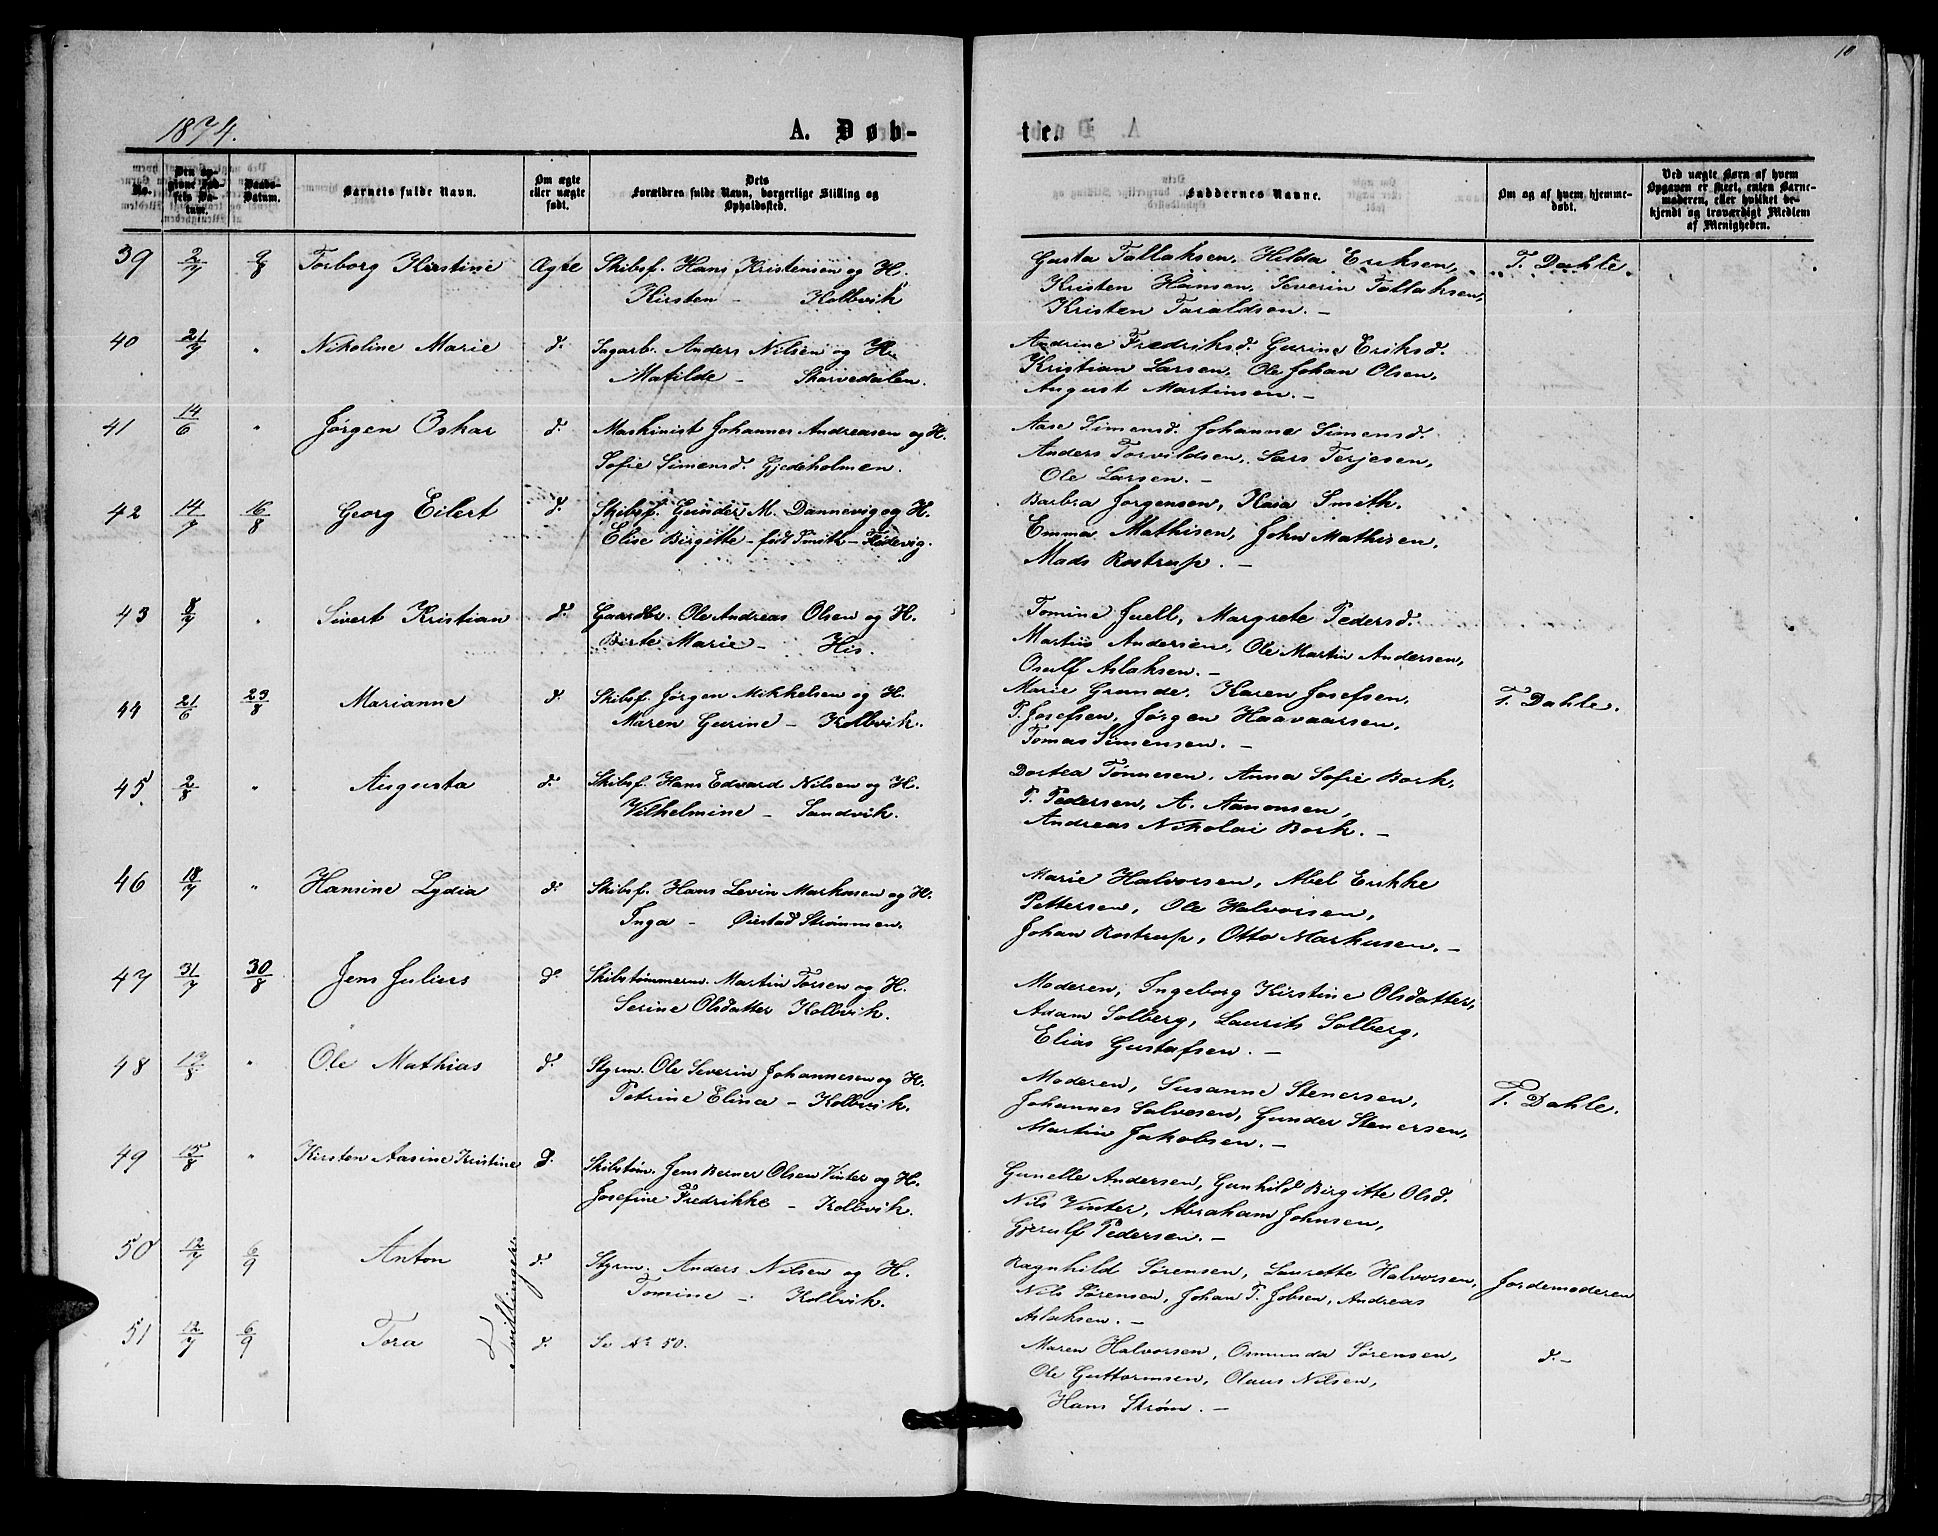 10
1874.
A. Døb-
te.
No.
Den op-
givne Fød-
sels Da-
tum.
Daabs-
Datum.
Barnets fulde Navn.
Om ægte
eller uægte
født.
Dets
Forældres fulde Navn, borgerlige Stilling og
Opholdssted.
Faddernes Navne.
Om og af hvem hjemme-
døbt.
Ved uægte Børn af hvem
Opgaven er skeet, enten Barne-
moderen, eller hvilket be-
kjendt og troværdigt Medlem
af Menigheden.
39 2/7 2/8 Torborg Kirstine Ægte Skibsf. Hans Kristensen og H.
Kirsten - Kolbvik
Gusta Tallaksen, Hilda Eriksen,
Kristen Hansen, Severin Tallaksen,
Kristen Taraldson. -
T. Dahle.
40 21/7 " Nikoline Marie d. Sagarb. Anders Nilsen og H.
Matilde - Skarvedalen.
Andrine Fredriksd. Gurine Eriksd.
Kristian Larsen, Ole Johan Olsen,
August Martinsen. -
41 14/6 " Jørgen Oskar d. Maskinist Johannes Andreasen og H.
Sofie Simensd. Gjedeholmen.
Aase Simensd. Johanne Simensd.
Anders Torvildsen, Lars Terjesen,
Ole Larsen. -
42 14/7 16/8 Georg Eilert d. Skibsf. Gunder M. Dannevig og H.
Elise Birgitte - født Smith - Flødevig.
Barbra Jørgensen, Kaia Smith,
Emma Mathisen, John Mathisen,
Mads Rostrup. -
43 8/7 " Sivert Kristian d. Gaardbr. Ole Andreas Olsen og H.
Berte Marie - His.
Tomine Juell, Margrete Pedersd.
Martin Andersen, Ole Martin Andersen,
Osulf Aslaksen. -
44 21/6 23/8 Marianne d. Skibsf. Jørgen Mikkelsen og H.
Maren Gurine - Kolbvik.
Marie Grande, Karen Josefsen,
P. Josefsen, Jørgen Haavaarsen,
Tomas Simensen. -
T. Dahle.
45 2/8 " Augusta d. Skibsf. Hans Edvard Nilsen og H.
Vilhelmine - Sandvik.
Dortea Tønnesen, Anna Sofie Bork,
P. Pedersen, A. Aanonsen,
Andreas Nikolai Bork. -
46 18/7 " Hansine Lydia d. Skibsf. Hans Levin Markusen og H.
Inga - Øiestad Strømmen.
Marie Halvorsen, Abel Erikke
Pettersen, Ole Halvorsen,
Johan Rostrup, Otto Markusen. -
47 31/7 30/8 Jens Julius d. Skibstømmerm. Martin Torsen og H.
Serine Olsdatter Kolbvik.
Moderen, Ingeborg Kirstine Olsdatter,
Adam Solberg, Laurits Solberg,
Elias Gustafsen. -
48 13/8 " Ole Mathias d. Styrm. Ole Severin Johannesen og H.
Petrine Elina - Kolbvik.
Moderen, Susanne Stenersen,
Johannes Salvesen, Gunder Stenersen,
Martin Jakobsen. -
T. Dahle.
49 15/8 " Kirsten Aasine Kristine d. Skibstøm. Jens Berner Olsen Vinter og H.
Josefine Fredrikke - Kolbvik.
Gunelle Andersen, Gunhild Birgitte Olsd.
Nils Vinter, Abraham Johnsen,
Gjerulf Pedersen. -
50 12/7 6/9 Anton d. Styrm. Anders Nilsen og H.
Tomine - Kolbvik.
Ragnhild Sørensen, Laurette Halvorsen,
Nils Sørensen, Johan P. Jobsen, Andreas
Aslaksen. -
Jordemoderen
Tvillinger.
51 12/7 6/9 Tora d. Se No 50.
Maren Halvorsen, Osmunda Sørensen,
Ole Guttormsen, Olaus Nilsen,
Hans Strøm. -
d. -